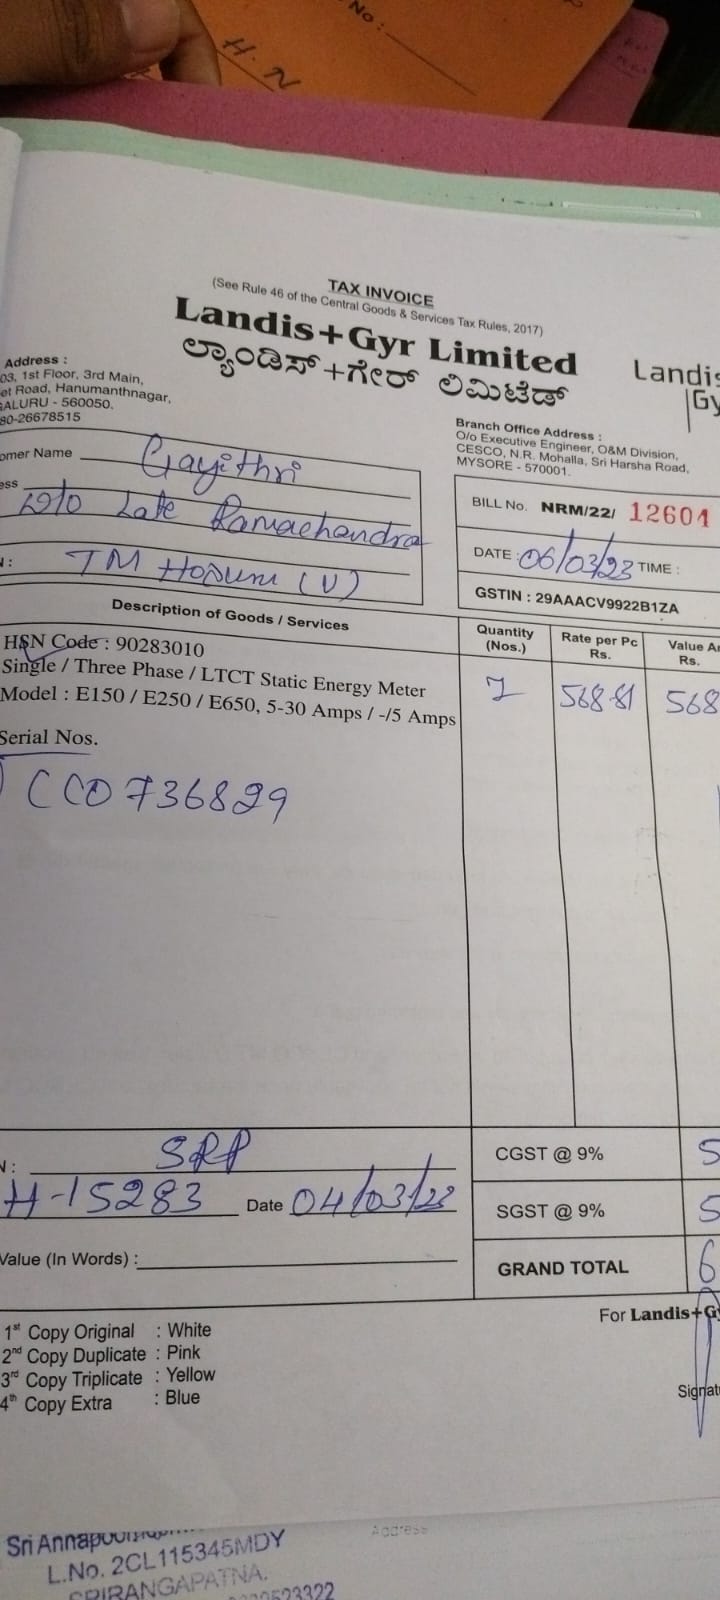 No :
H. N
TAX INVOICE
(See Rule 46 of the Central Goods & Services Tax Rules, 2017)
Landis+Gyr Limited
ಲ್ಯಾಂಡಿಸ್+ಗೇರ್ ಲಿಮಿಟೆಡ್
Landis
Gy
Address :
03, 1st Floor, 3rd Main,
et Road, Hanumanthnagar,
GALURU - 560050.
80-26678515
Branch Office Address :
O/o Executive Engineer, O&M Division,
CESCO, N.R. Mohalla, Sri Harsha Road,
MYSORE - 570001.
omer Name Gayithri
ess W/o Late Ramachandra
N : TM Hosuru (V)
BILL No. NRM/22/ 12601
DATE : 06/03/23 TIME :
GSTIN : 29AAACV9922B1ZA
Description of Goods / Services
Quantity (Nos.)
Rate per Pc Rs.
Value Am Rs.
HSN Code : 90283010
Single / Three Phase / LTCT Static Energy Meter
Model : E150 / E250 / E650, 5-30 Amps / -/5 Amps
1 568-81 568
Serial Nos.
) CCO736829
N : SRP
H-15283 Date 04/03/23
Value (In Words) :
CGST @ 9% 5
SGST @ 9% 5
GRAND TOTAL 6
1st Copy Original : White
2nd Copy Duplicate : Pink
3rd Copy Triplicate : Yellow
4th Copy Extra : Blue
For Landis+Gy
Signatu
Address
Sri
L.No. 2CL115345MDY
SRIRANGAPATNA.